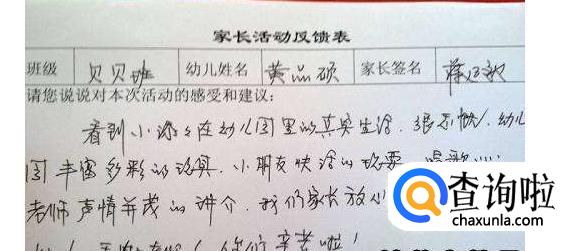 家长活动反馈表
班级 贝贝班 幼儿姓名 黄品硕 家长签名
请您说说对本次活动的感受和建议:
看到小孩子在幼儿园里的真实生活,很开心!幼儿
园丰富多彩的玩具,小朋友快活的玩耍,唱歌
老师声情并茂的讲介,我们家长放心
你们辛苦啦!
查询啦
chaxunla.com